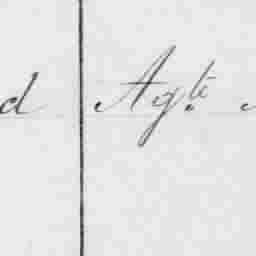 d Agte